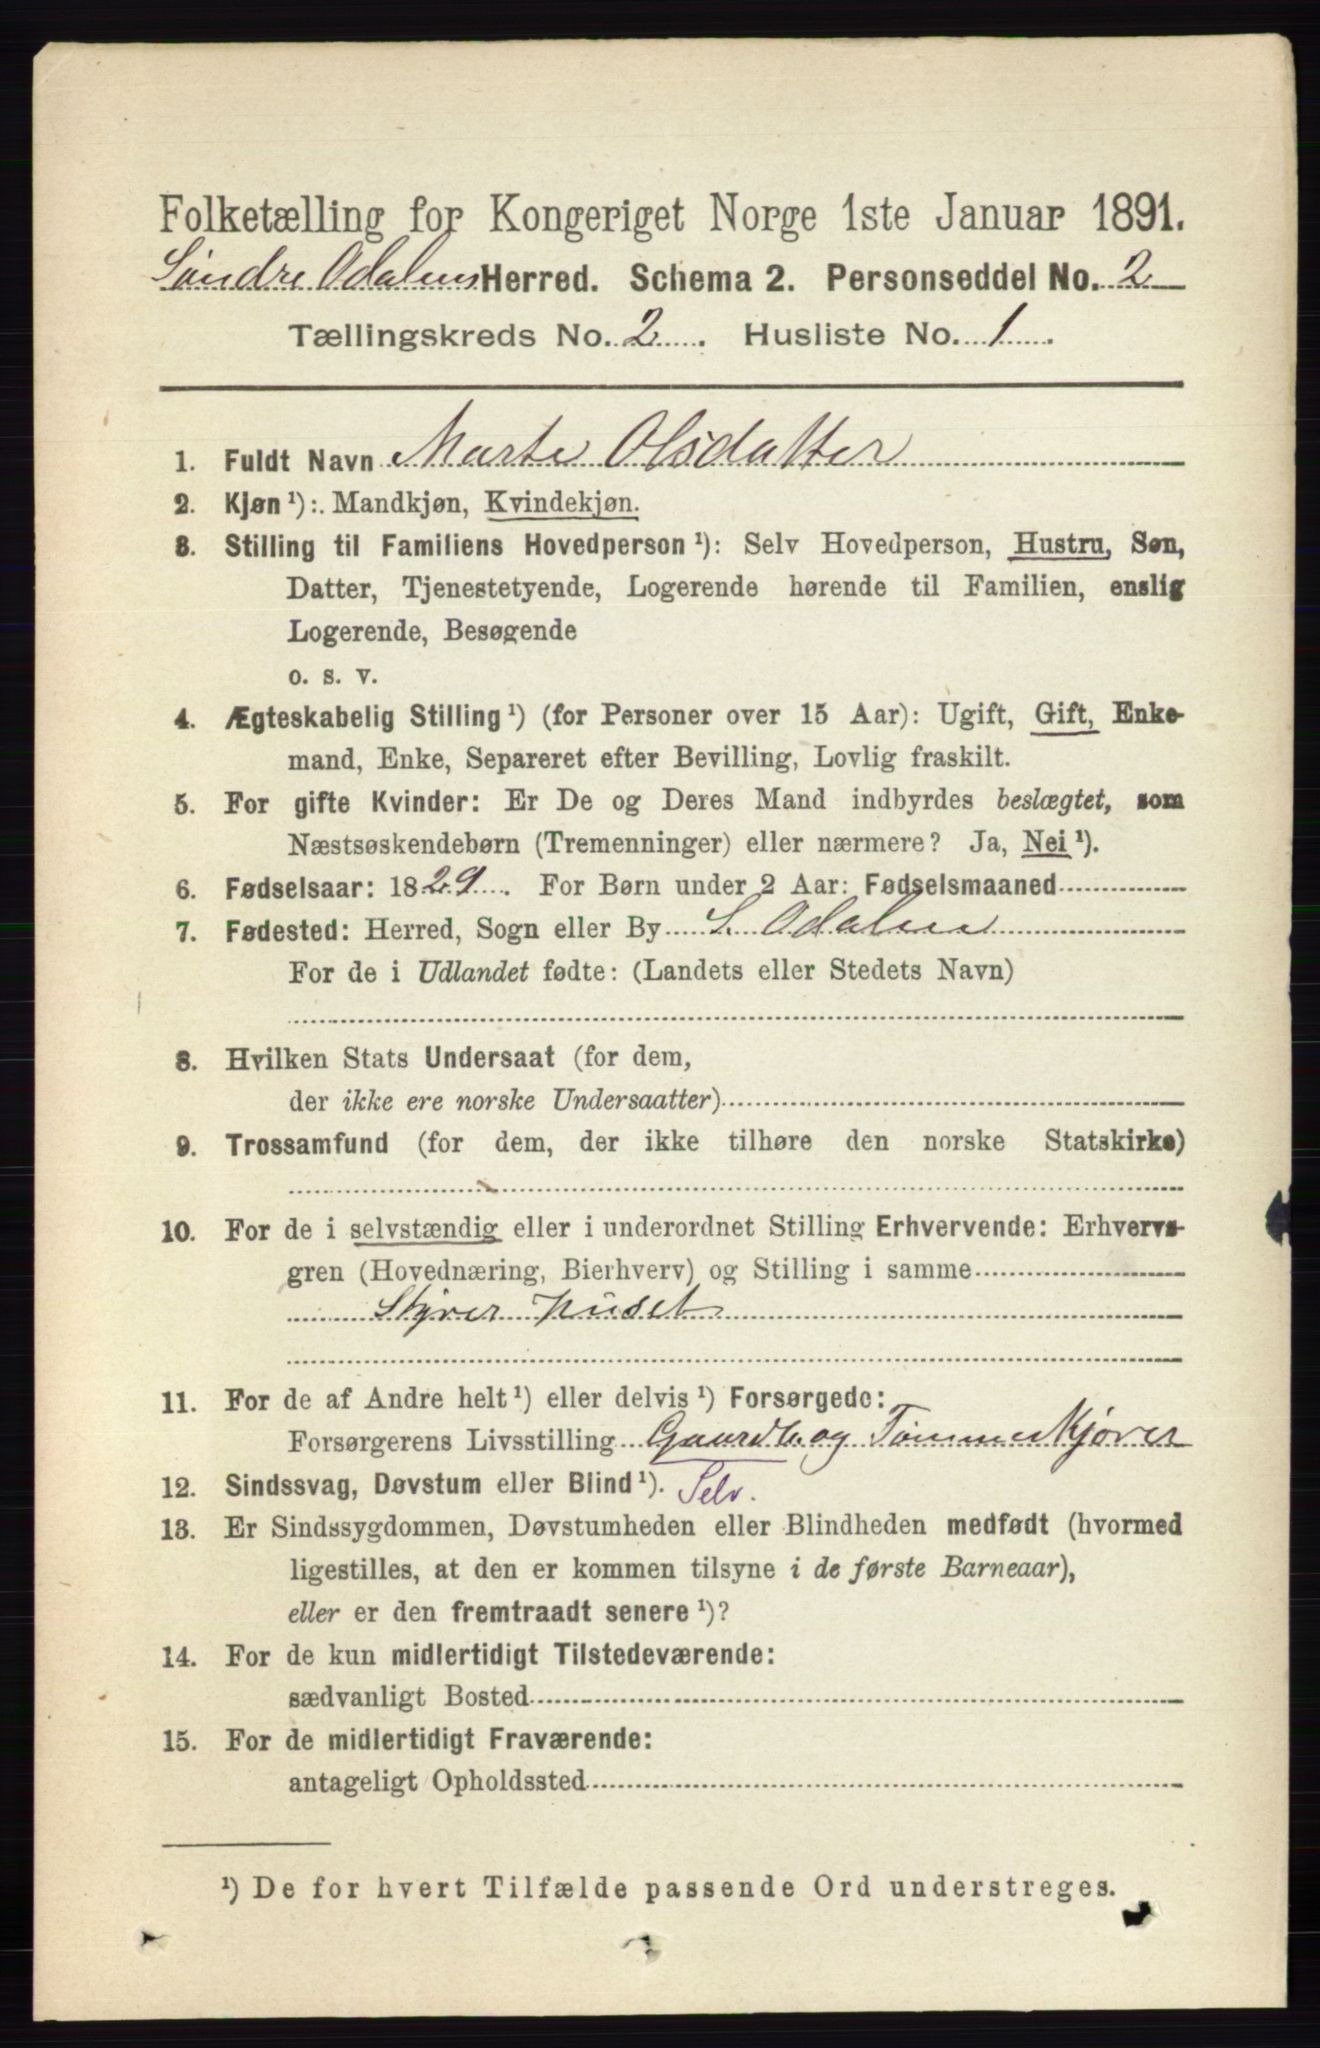 Folketælling for Kongeriget Norge 1ste Januar 1891.
Söndre Odalens Herred. Schema 2. Personseddel No. 2
Tællingskreds No. 2. Husliste No. 1.
1. Fuldt Navn Marte Olsdatter
2. Kjøn ¹): Mandkjøn, Kvindekjøn.
3. Stilling til Familiens Hovedperson ¹): Selv Hovedperson, Hustru, Søn,
Datter, Tjenestetyende, Logerende hørende til Familien, enslig
Logerende, Besøgende
o. s. v.
4. Ægteskabelig Stilling ¹) (for Personer over 15 Aar): Ugift, Gift, Enke-
mand, Enke, Separeret efter Bevilling, Lovlig fraskilt.
5. For gifte Kvinder: Er De og Deres Mand indbyrdes beslægtet, som
Næstsøskendebørn (Tremenninger) eller nærmere? Ja, Nei ¹).
6. Fødselsaar: 1829. For Børn under 2 Aar: Fødselsmaaned
7. Fødested: Herred, Sogn eller By S. Odalen
For de i Udlandet fødte: (Landets eller Stedets Navn)
8. Hvilken Stats Undersaat (for dem,
der ikke ere norske Undersaatter)
9. Trossamfund (for dem, der ikke tilhøre den norske Statskirke)
10. For de i selvstændig eller i underordnet Stilling Erhvervende: Erhvervs-
gren (Hovednæring, Bierhverv) og Stilling i samme
Styrer huset
11. For de af Andre helt ¹) eller delvis ¹) Forsørgede:
Forsørgerens Livsstilling Gaardb. og Tømmerkjører
12. Sindssvag, Døvstum eller Blind ¹). Selv.
13. Er Sindssygdommen, Døvstumheden eller Blindheden medfødt (hvormed
ligestilles, at den er kommen tilsyne i de første Barneaar),
eller er den fremtraadt senere ¹)?
14. For de kun midlertidigt Tilstedeværende:
sædvanligt Bosted
15. For de midlertidigt Fraværende:
antageligt Opholdssted
¹) De for hvert Tilfælde passende Ord understreges.